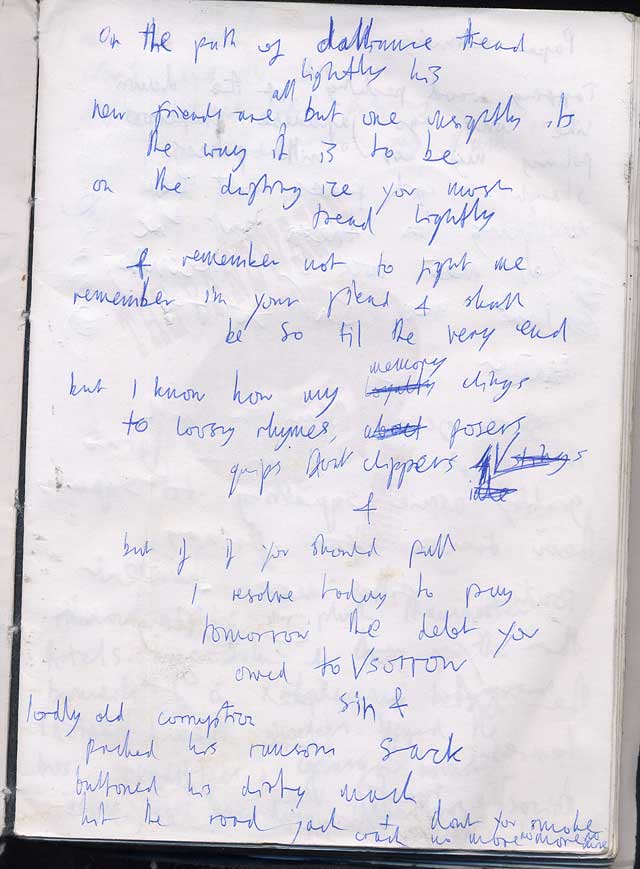 On the path of dalliance tread
lightly his
new friends are all but one unsightly its
the way it is to be
on the drifting ice you must
tread lightly
& remember not to fight me
remember im your friend & shall
be so til the very end
but I know how my memory clings
to lousy rhymes, posers
quips
&
but if if you should fall
I resolve today to pay
tomorrow the debt you
owed to sin & sorrow
lordly old corruption
packed his ransom sack
buttoned his dirty mack
hit the road jack + dont you smoke
crack no more no more no more